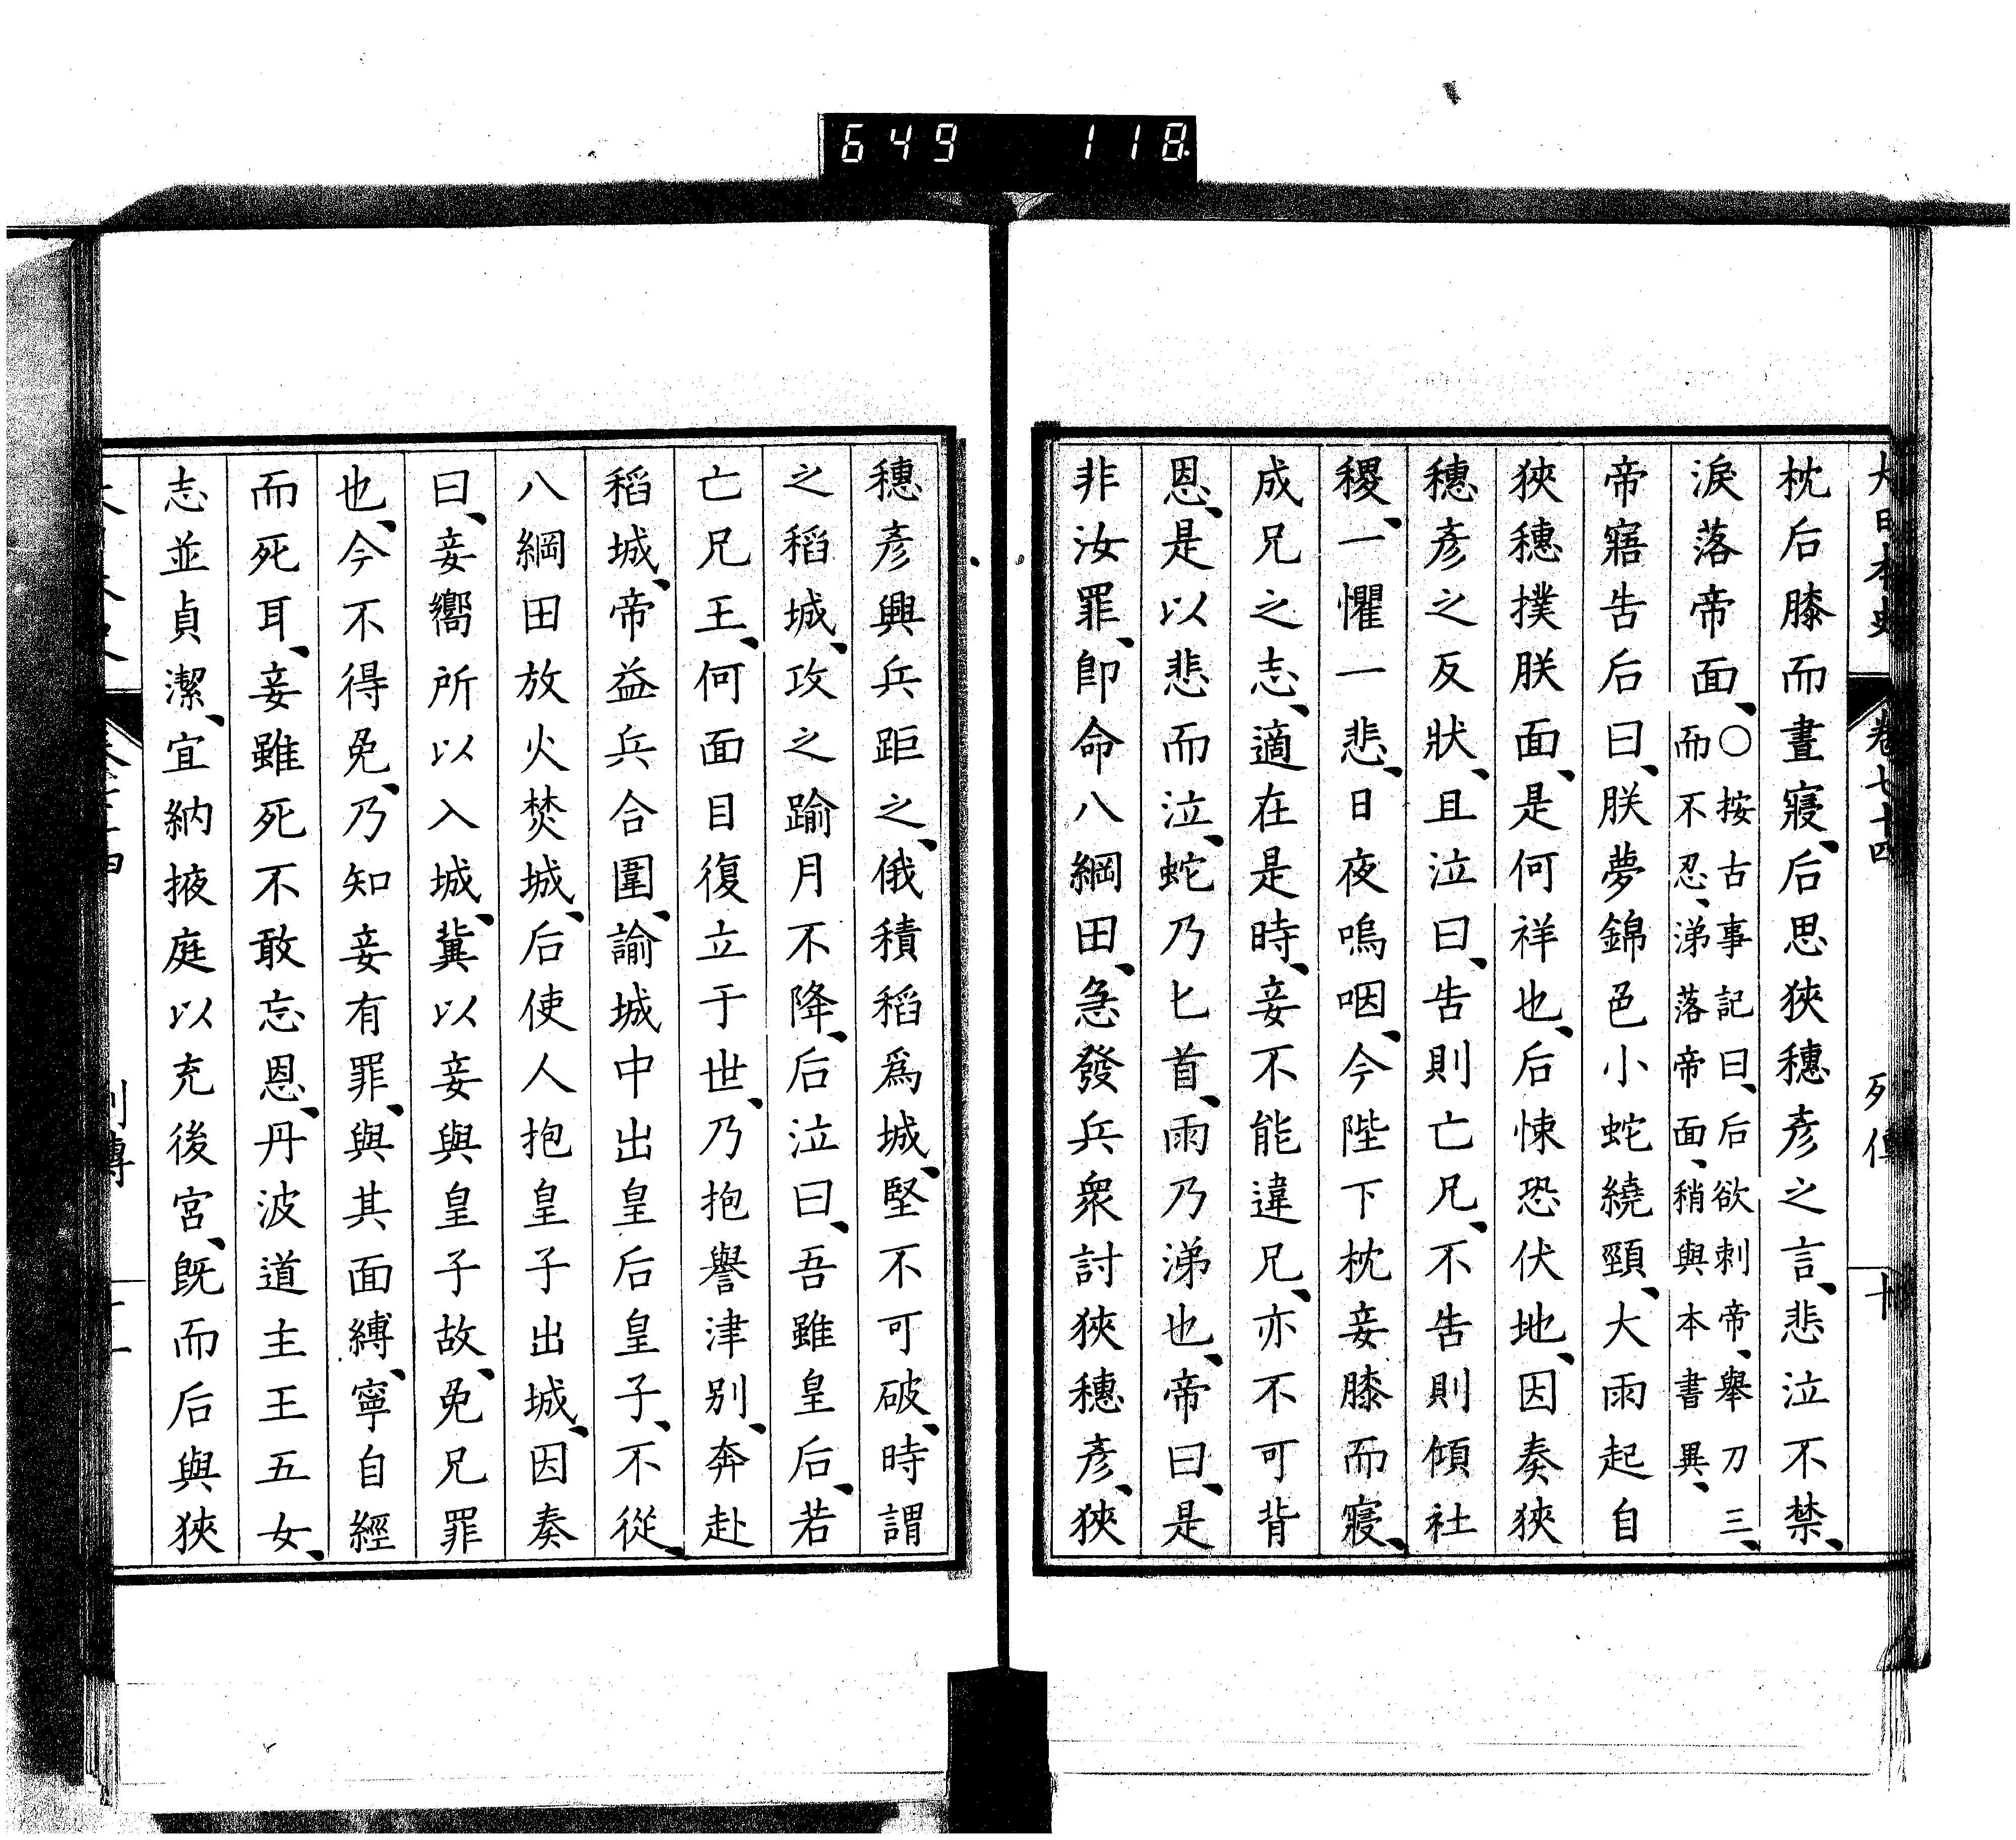 649 118
大日本史 卷七十四 列傳 十
枕后膝而晝寢、后思狹穗彥之言、悲泣不禁、
淚落帝面、○按古事記曰、后欲刺帝、舉刀三、
而不忍、涕落帝面、稍與本書異、
帝寤告后曰、朕夢錦色小蛇繞頸、大雨起自
狹穗撲朕面、是何祥也、后悚恐伏地、因奏狹
穗彥之反狀、且泣曰、告則亡兄、不告則傾社
稷、一懼一悲、日夜嗚咽、今陛下枕妾膝而寢、
成兄之志、適在是時、妾不能違兄、亦不可背
恩、是以悲而泣、蛇乃匕首、雨乃涕也、帝曰、是
非汝罪、卽命八綱田、急發兵衆討狹穗彥、狹
穗彥興兵距之、俄積稻爲城、堅不可破、時謂
之稻城、攻之踰月不降、后泣曰、吾雖皇后、若
亡兄王、何面目復立于世、乃抱譽津別、奔赴
稻城、帝益兵合圍、諭城中出皇后皇子、不從、
八綱田放火焚城、后使人抱皇子出城、因奏
曰、妾嚮所以入城、冀以妾與皇子故、免兄罪
也、今不得免、乃知妾有罪、與其面縛、寧自經
而死耳、妾雖死不敢忘恩、丹波道主王五女、
志並貞潔、宜納掖庭以充後宮、旣而后與狹